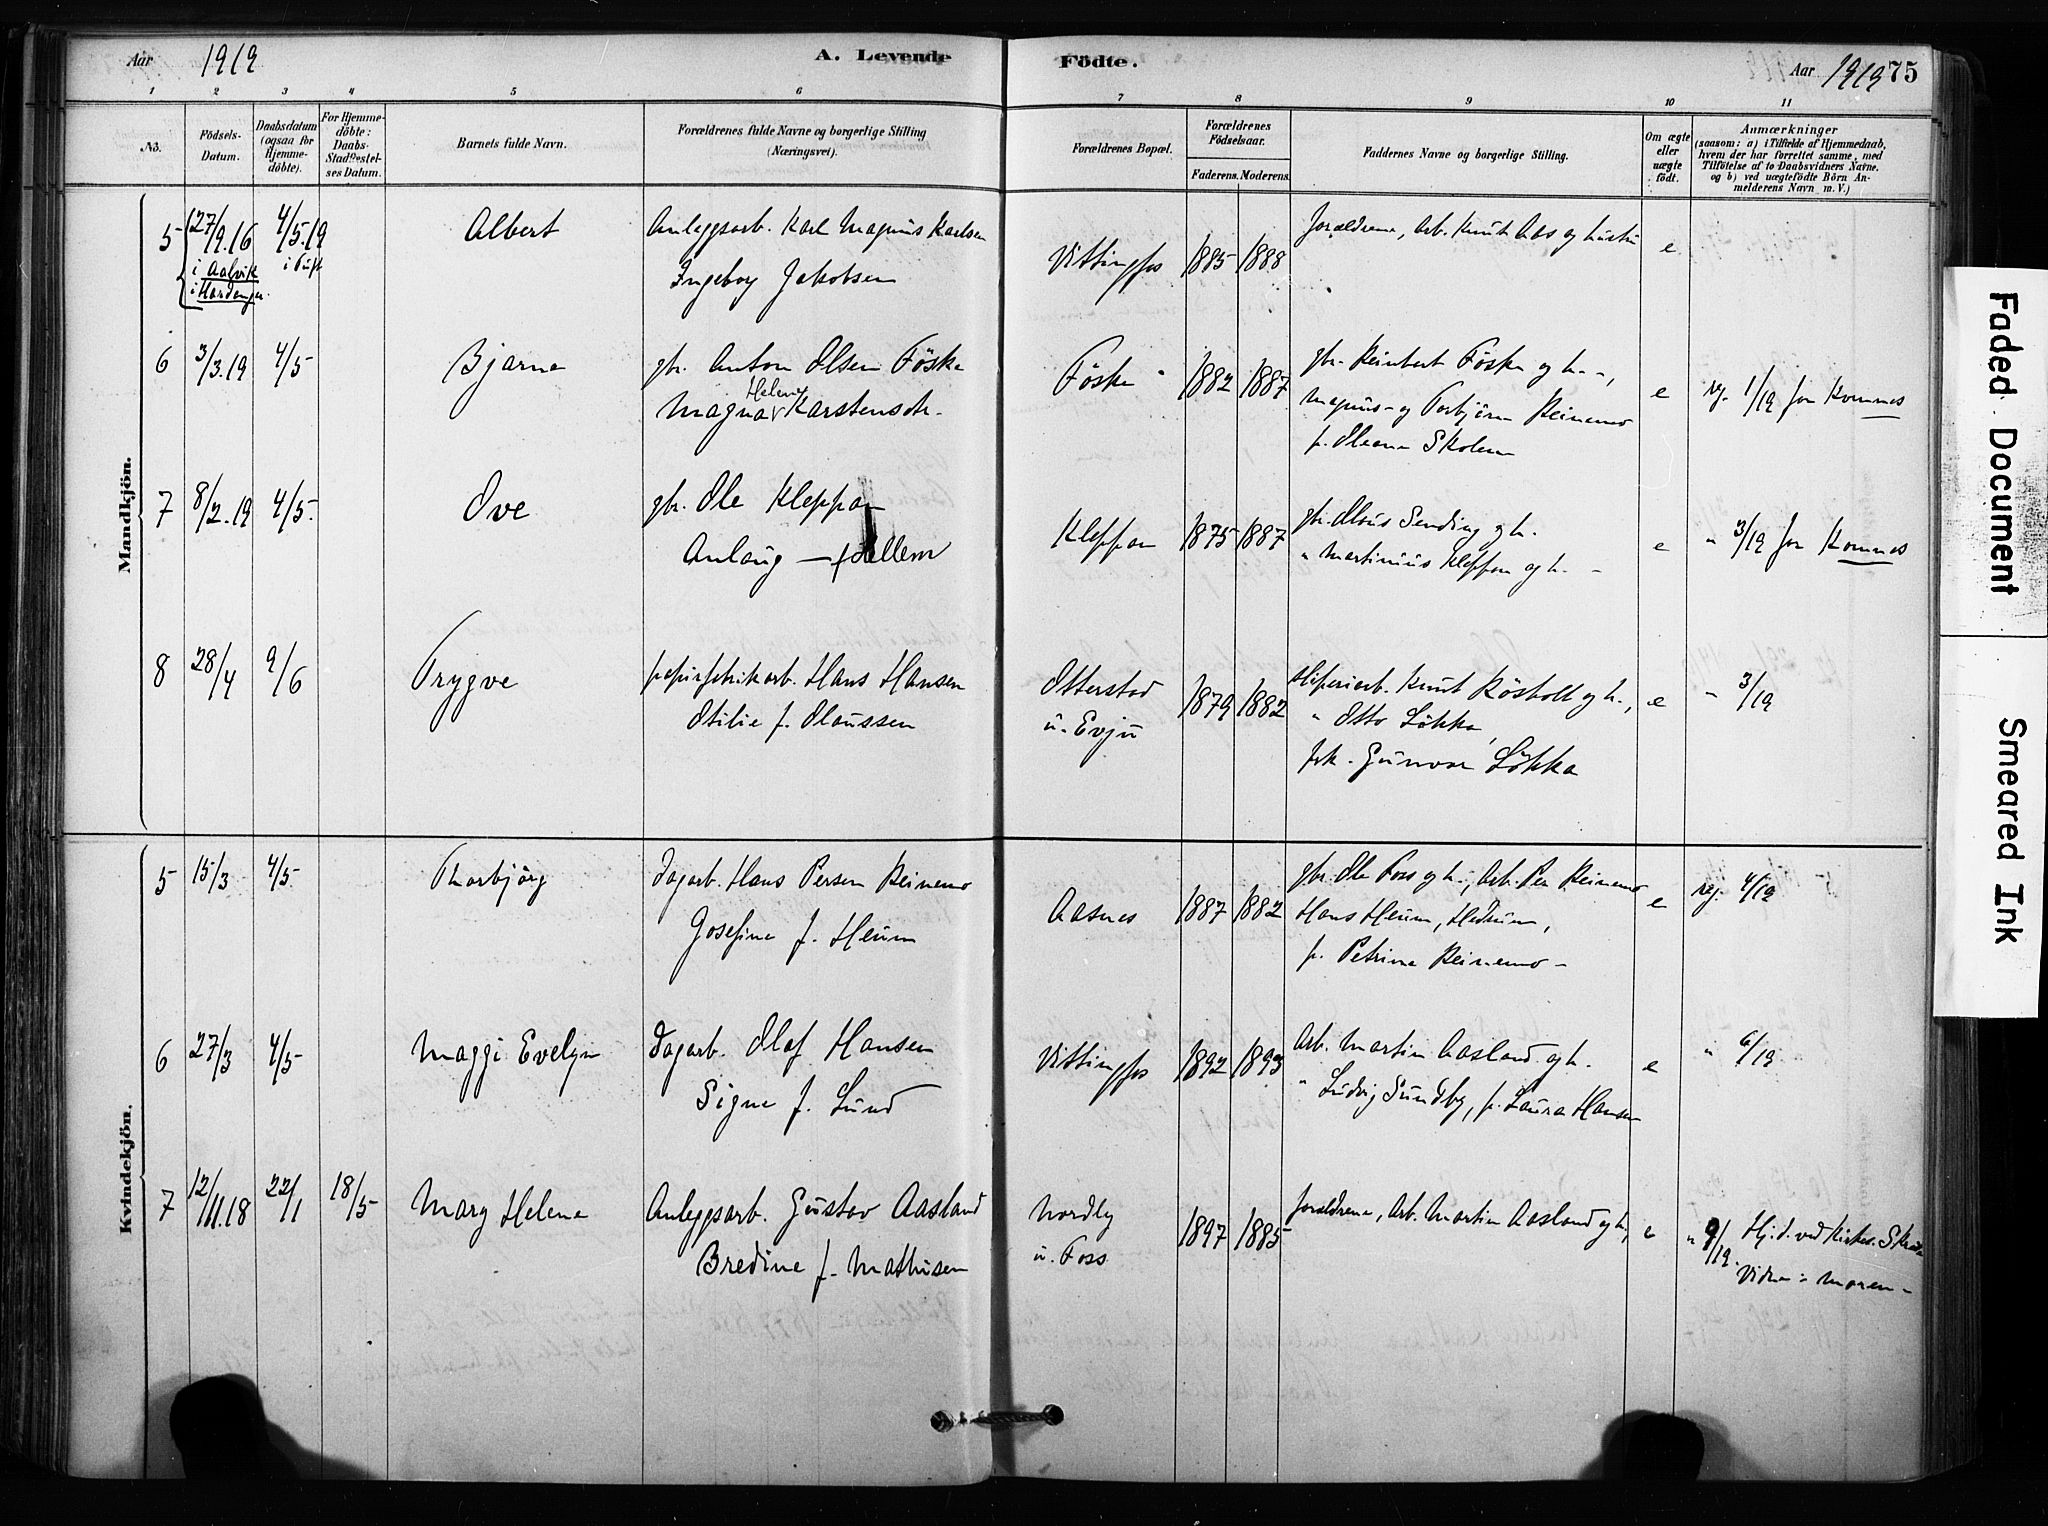 Aar 1919 A. Levende Födte. Aar 1919 75
1 2 3 4 5 6 7 8 9 10 11
No. Födsels-Datum. Daabsdatum (ogsaa for Hjemmedöbte). For Hjemmedöbte: Daabs-Stadfestelses Datum. Barnets fulde Navn. Forældrenes fulde Navne og borgerlige Stilling (Næringsvei). Forældrenes Bopæl. Forældrenes Födselsaar. Faderens. Moderens. Faddernes Navne og borgerlige Stilling. Om ægte eller uægte födt. Anmærkninger (saasom: a) i Tilfælde af Hjemmedaab, hvem der har forrettet samme, med Tilföielse af to Daabsvidners Navne, og b) ved uægtefödte Börn Anmelderens Navn m. V.)
Mandkjön.
5 27/9.16 4/5.19 Albert Anleggsarb. Karl Magnus Karlsen Vittingfos 1885 1888 forældrene, Arb. Knut Aas og hustru e
i Aalvik i Tuft Ingeborg Jakobsen
i Hardanger.
6 3/3.19 4/5 Bjarne gbr. Anton Olsen Föske Föske 1882 1887 gbr. Reinbert Föske og h.-, e rg. 1/19 for Komnes
Magna Helene Karstensdtr. Magnus- og Torbjörn Reinemo
p. Oleane Skolem
7 8/2.19 4/5. Ove gbr. Ole Kleppan Kleppan 1875 1887 gbr. Olaus Sending og h. e " 3/19 for Komnes
Anlaug — f. Hellem " Martinius Kleppan og h. -
8 28/4 9/6 Trygve papirfabrikarb. Hans Hansen Otterstad 1879 1882 sliperiarb. Knut Rösholt og h., e " 3/19
Otilie f. Olaussen u. Evju " Otto Lökka,
frk. Gunvor Lökka
Kvindekjön.
5 15/3 4/5 Thorbjörg Dagarb. Hans Persen Reinemo Aasnes 1887 1882 gbr. Ole Foss og h., Arb. Per Reinemo e rg. 4/19
Josefine f. Heum Hans Heum, Hedrum,
p. Petrine Reinemo -
6 27/3 4/5 Maggi Evelyn Dagarb. Olaf Hansen Vittingfos 1892 1893 Arb. Martin Aasland og h. e " 6/19
Signe f. Lund " Ludvig Sundby, p. Laura Hansen
7 12/11.18 22/1 18/5 Mary Helene Anleggsarb. Gustav Aasland Nordby 1897 1885 forældrene, Arb. Martin Aasland og h., e " 9/19. Hj. d. ved Kirkes.
Bredine f. Mathisen u. Foss Vidne: Moren -
Faded Document
Smeared Ink